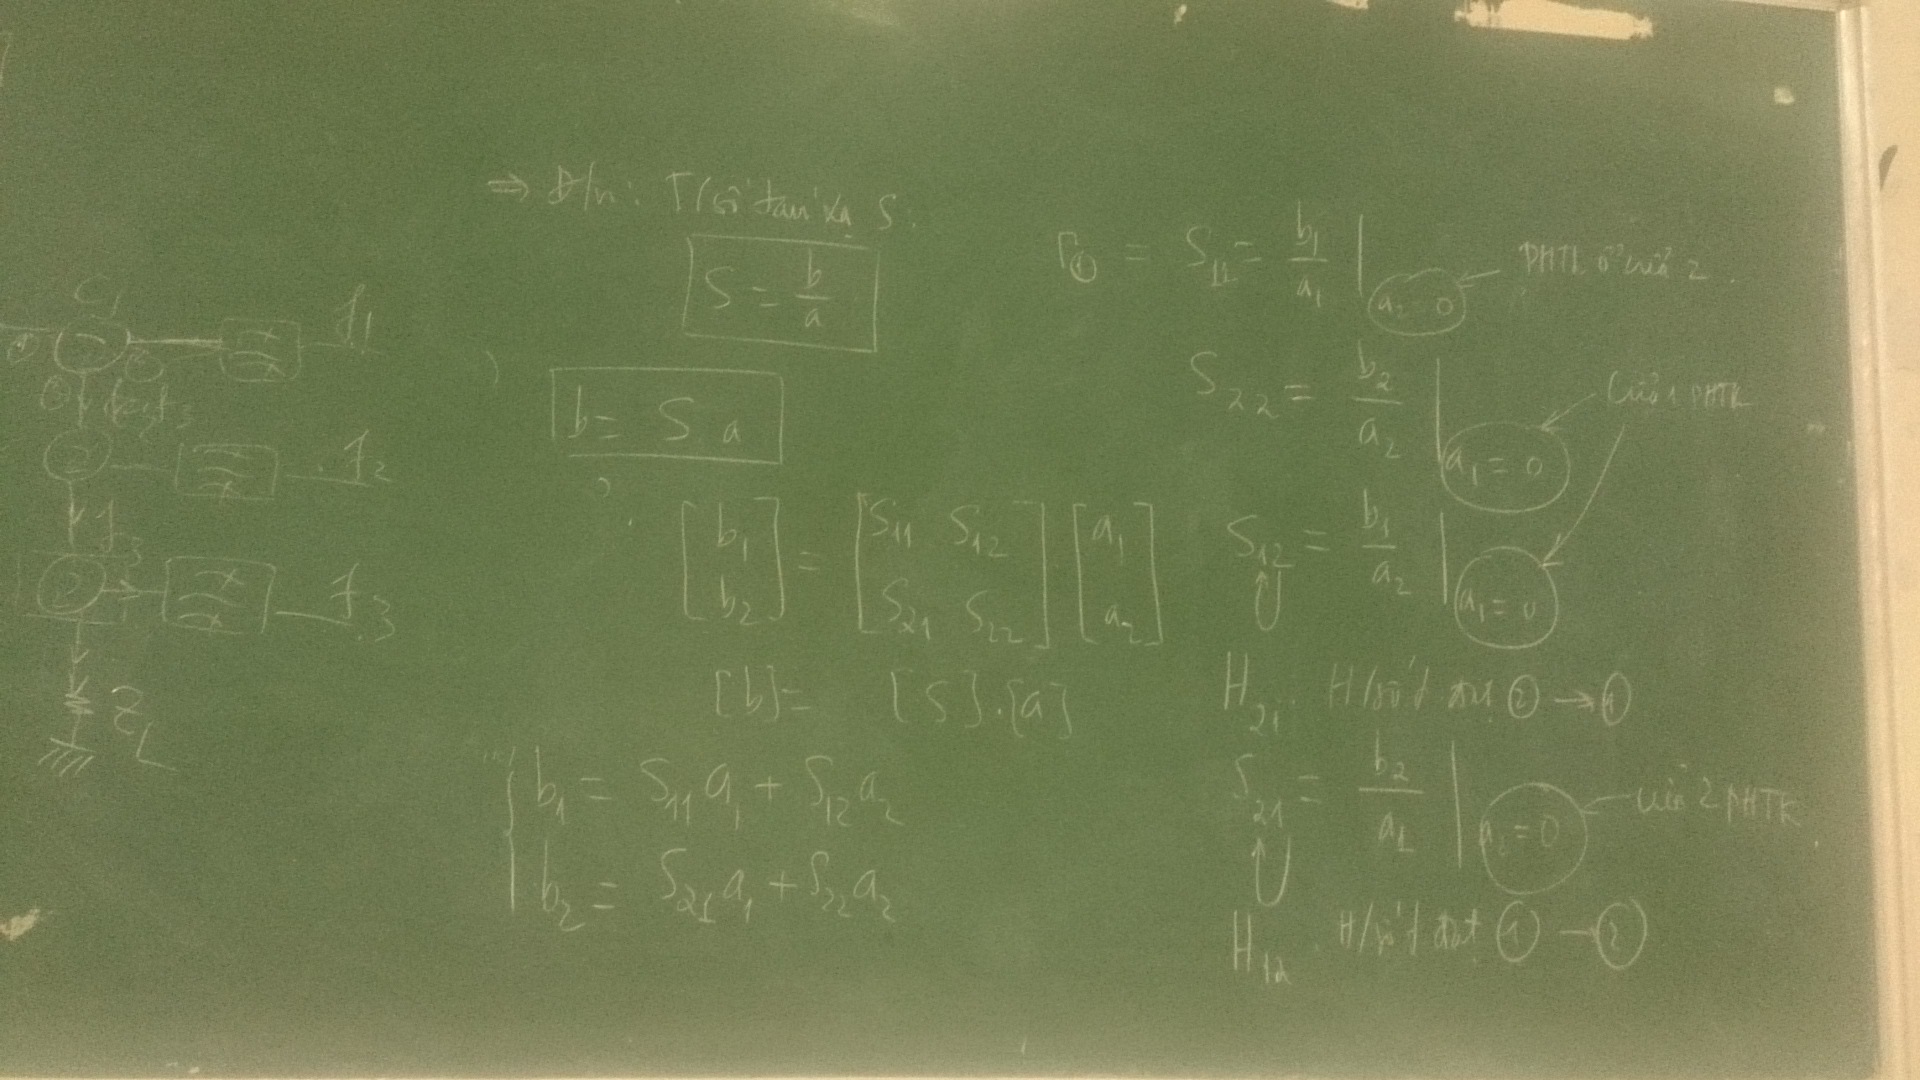 C₁
①
f₁
②
f₂
f₃
f₃
Z_L
⇒ Đ/n: T/số tán xạ S:
S = b/a
b = S.a
[b₁ b₂] = [S₁₁ S₁₂ S₂₁ S₂₂] . [a₁ a₂]
[b] = [S].[a]
b₁ = S₁₁a₁ + S₁₂a₂
b₂ = S₂₁a₁ + S₂₂a₂
Γ① = S₁₁ = b₁/a₁ | a₂ = 0 PHTK ở cửa 2.
S₂₂ = b₂/a₂ | a₁ = 0 Cửa 1 PHTK
S₁₂ = b₁/a₂ | a₁ = 0
H₂₁. H/số t đạt ② → ①
S₂₁ = b₂/a₁ | a₂ = 0 cửa 2 PHTK
H₁₂ H/số t đạt ① → ②